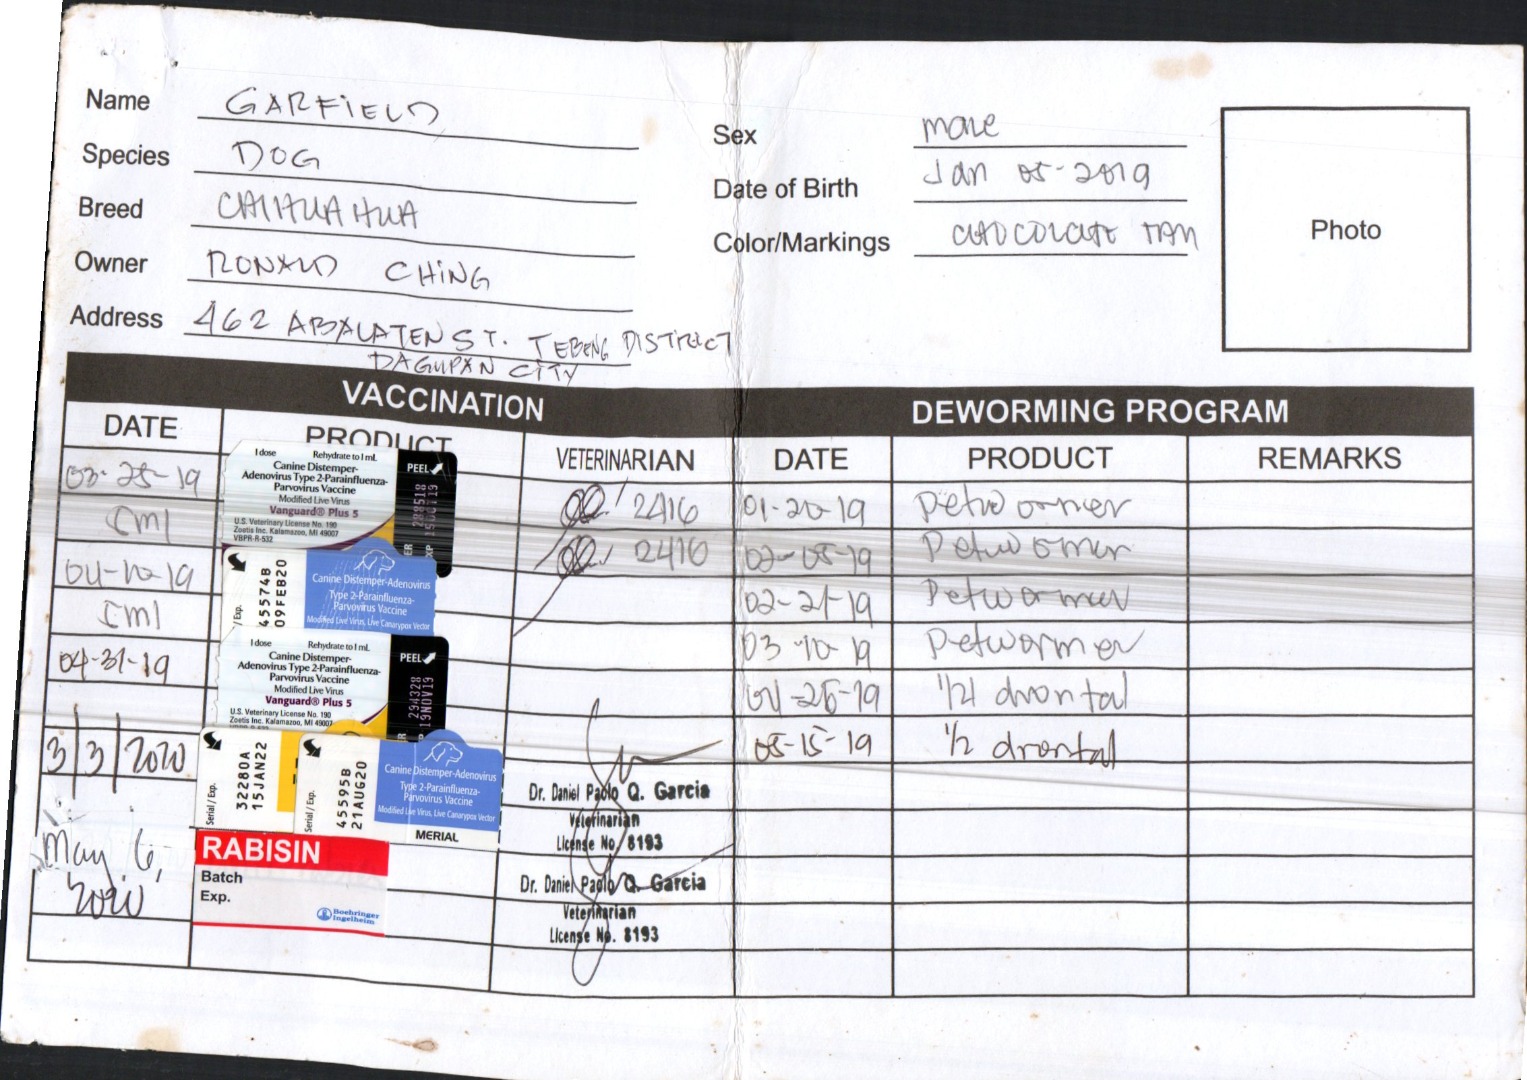 Name GARFIELD
Species DOG
Breed CHIHUAHUA
Owner RONALD CHING
Address 462 ABALATEN ST. TEBENG DISTRICT
DAGUPAN CITY
Sex male
Date of Birth Jan 05-2019
Color/Markings CHOCOLATE TAN
Photo
VACCINATION
DATE PRODUCT VETERINARIAN
03-25-19
Cml
04-10-19
Cml
04-31-19
3/3/2020
May 6,
2020
1 dose Rehydrate to 1 mL
Canine Distemper-
Adenovirus Type 2-Parainfluenza-
Parvovirus Vaccine
Modified Live Virus
Vanguard® Plus 5
U.S. Veterinary License No. 190
Zoetis Inc. Kalamazoo, MI 49007
VBPR-R-532
PEEL
288518
15OCT19
/ Exp.
45574B
09FEB20
Canine Distemper-Adenovirus
Type 2-Parainfluenza-
Parvovirus Vaccine
Modified Live Virus, Live Canarypox Vector
1 dose Rehydrate to 1 mL
Canine Distemper-
Adenovirus Type 2-Parainfluenza-
Parvovirus Vaccine
Modified Live Virus
Vanguard® Plus 5
U.S. Veterinary License No. 190
Zoetis Inc. Kalamazoo, MI 49007
PEEL
294328
19NOV19
Serial / Exp.
32280A
15JAN22
Serial / Exp.
45595B
21AUG20
Canine Distemper-Adenovirus
Type 2-Parainfluenza-
Parvovirus Vaccine
Modified Live Virus, Live Canarypox Vector
MERIAL
RABISIN
Batch
Exp.
Boehringer
Ingelheim
2416
2416
Dr. Daniel Paolo Q. Garcia
Veterinarian
License No. 8193
Dr. Daniel Paolo Q. Garcia
Veterinarian
License No. 8193
DEWORMING PROGRAM
DATE PRODUCT REMARKS
01-20-19 Petwormer
02-05-19 Petwormer
02-21-19 Petwormer
03-10-19 Petwormer
04-25-19 1/2 drontal
05-15-19 1/2 drontal